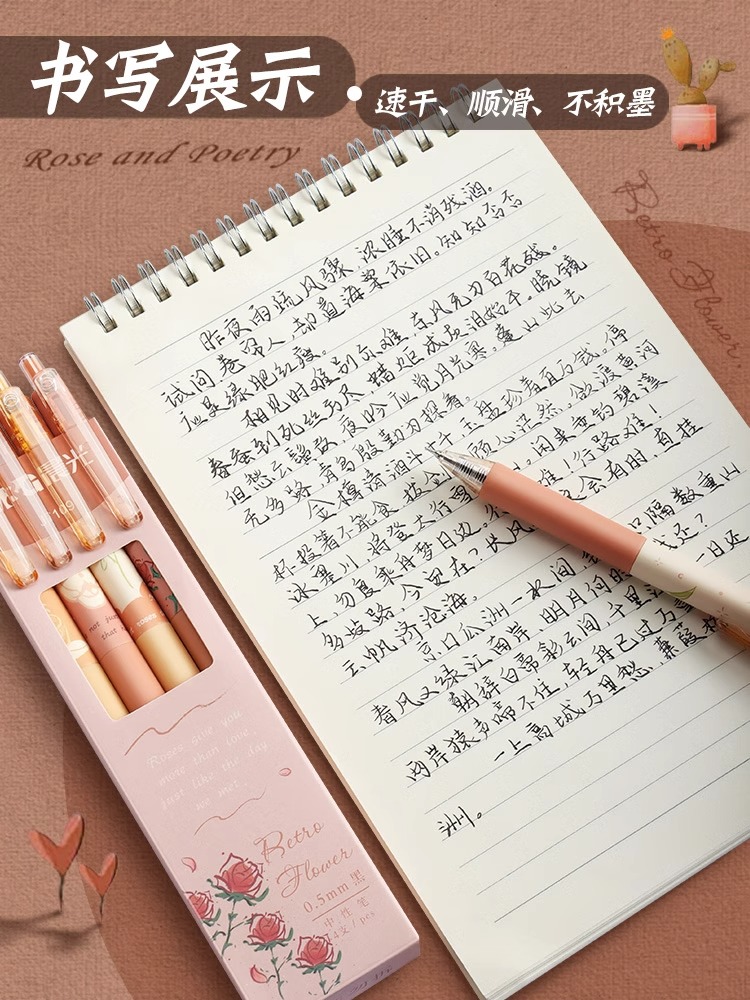 书写展示
速干、顺滑、不积墨
Rose and Poetry
Retro Flower
昨夜雨疏风骤,浓睡不消残酒。
试问卷帘人,却道海棠依旧。知知否否
应是绿肥红瘦。
相见时难别亦难,东风无力百花残。
春蚕到死丝方尽,蜡炬成灰泪始干。晓镜
但愁云鬓改,夜吟应觉月光寒。蓬山此去
无多路,青鸟殷勤为探看。
金樽清酒斗十千,玉盘珍羞直万钱。停
杯投箸不能食,拔 顾心茫然。欲渡黄河
冰塞川,将登太行雪 闲来垂钓碧溪
上,忽复乘舟梦日边。 难!行路难!
多歧路,今安在?长风 会有时,直挂
云帆济沧海。
京口瓜洲一水间, 只隔数重山
春风又绿江南岸,明月何时 我还?
朝辞白帝彩云间,千里江 一日还
两岸猿声啼不住,轻舟已过万重
一上高城万里愁,蒹葭杨
洲。
晨光
not just
that
Roses give you
more than love,
just like the day
we met.
Retro
Flower
0.5mm 黑
中性笔
4支/pcs